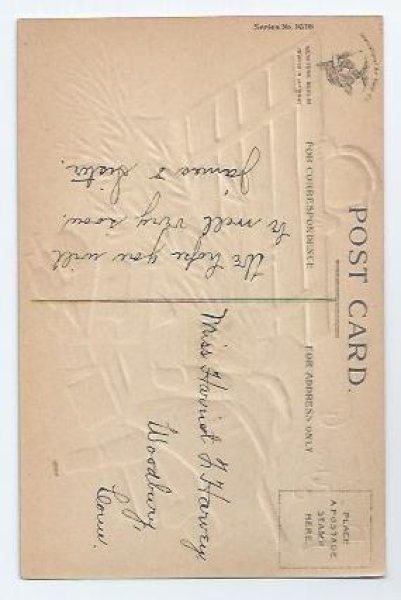 Series No. 
POST CARD.
FOR CORRESPONDENCE
FOR ADDRESS ONLY
PLACE
A POSTAGE
STAMP
HERE
We hope you will
be well very soon.
James & Sister.
Miss Harriet F. Harvey
Woodbury,
Conn.